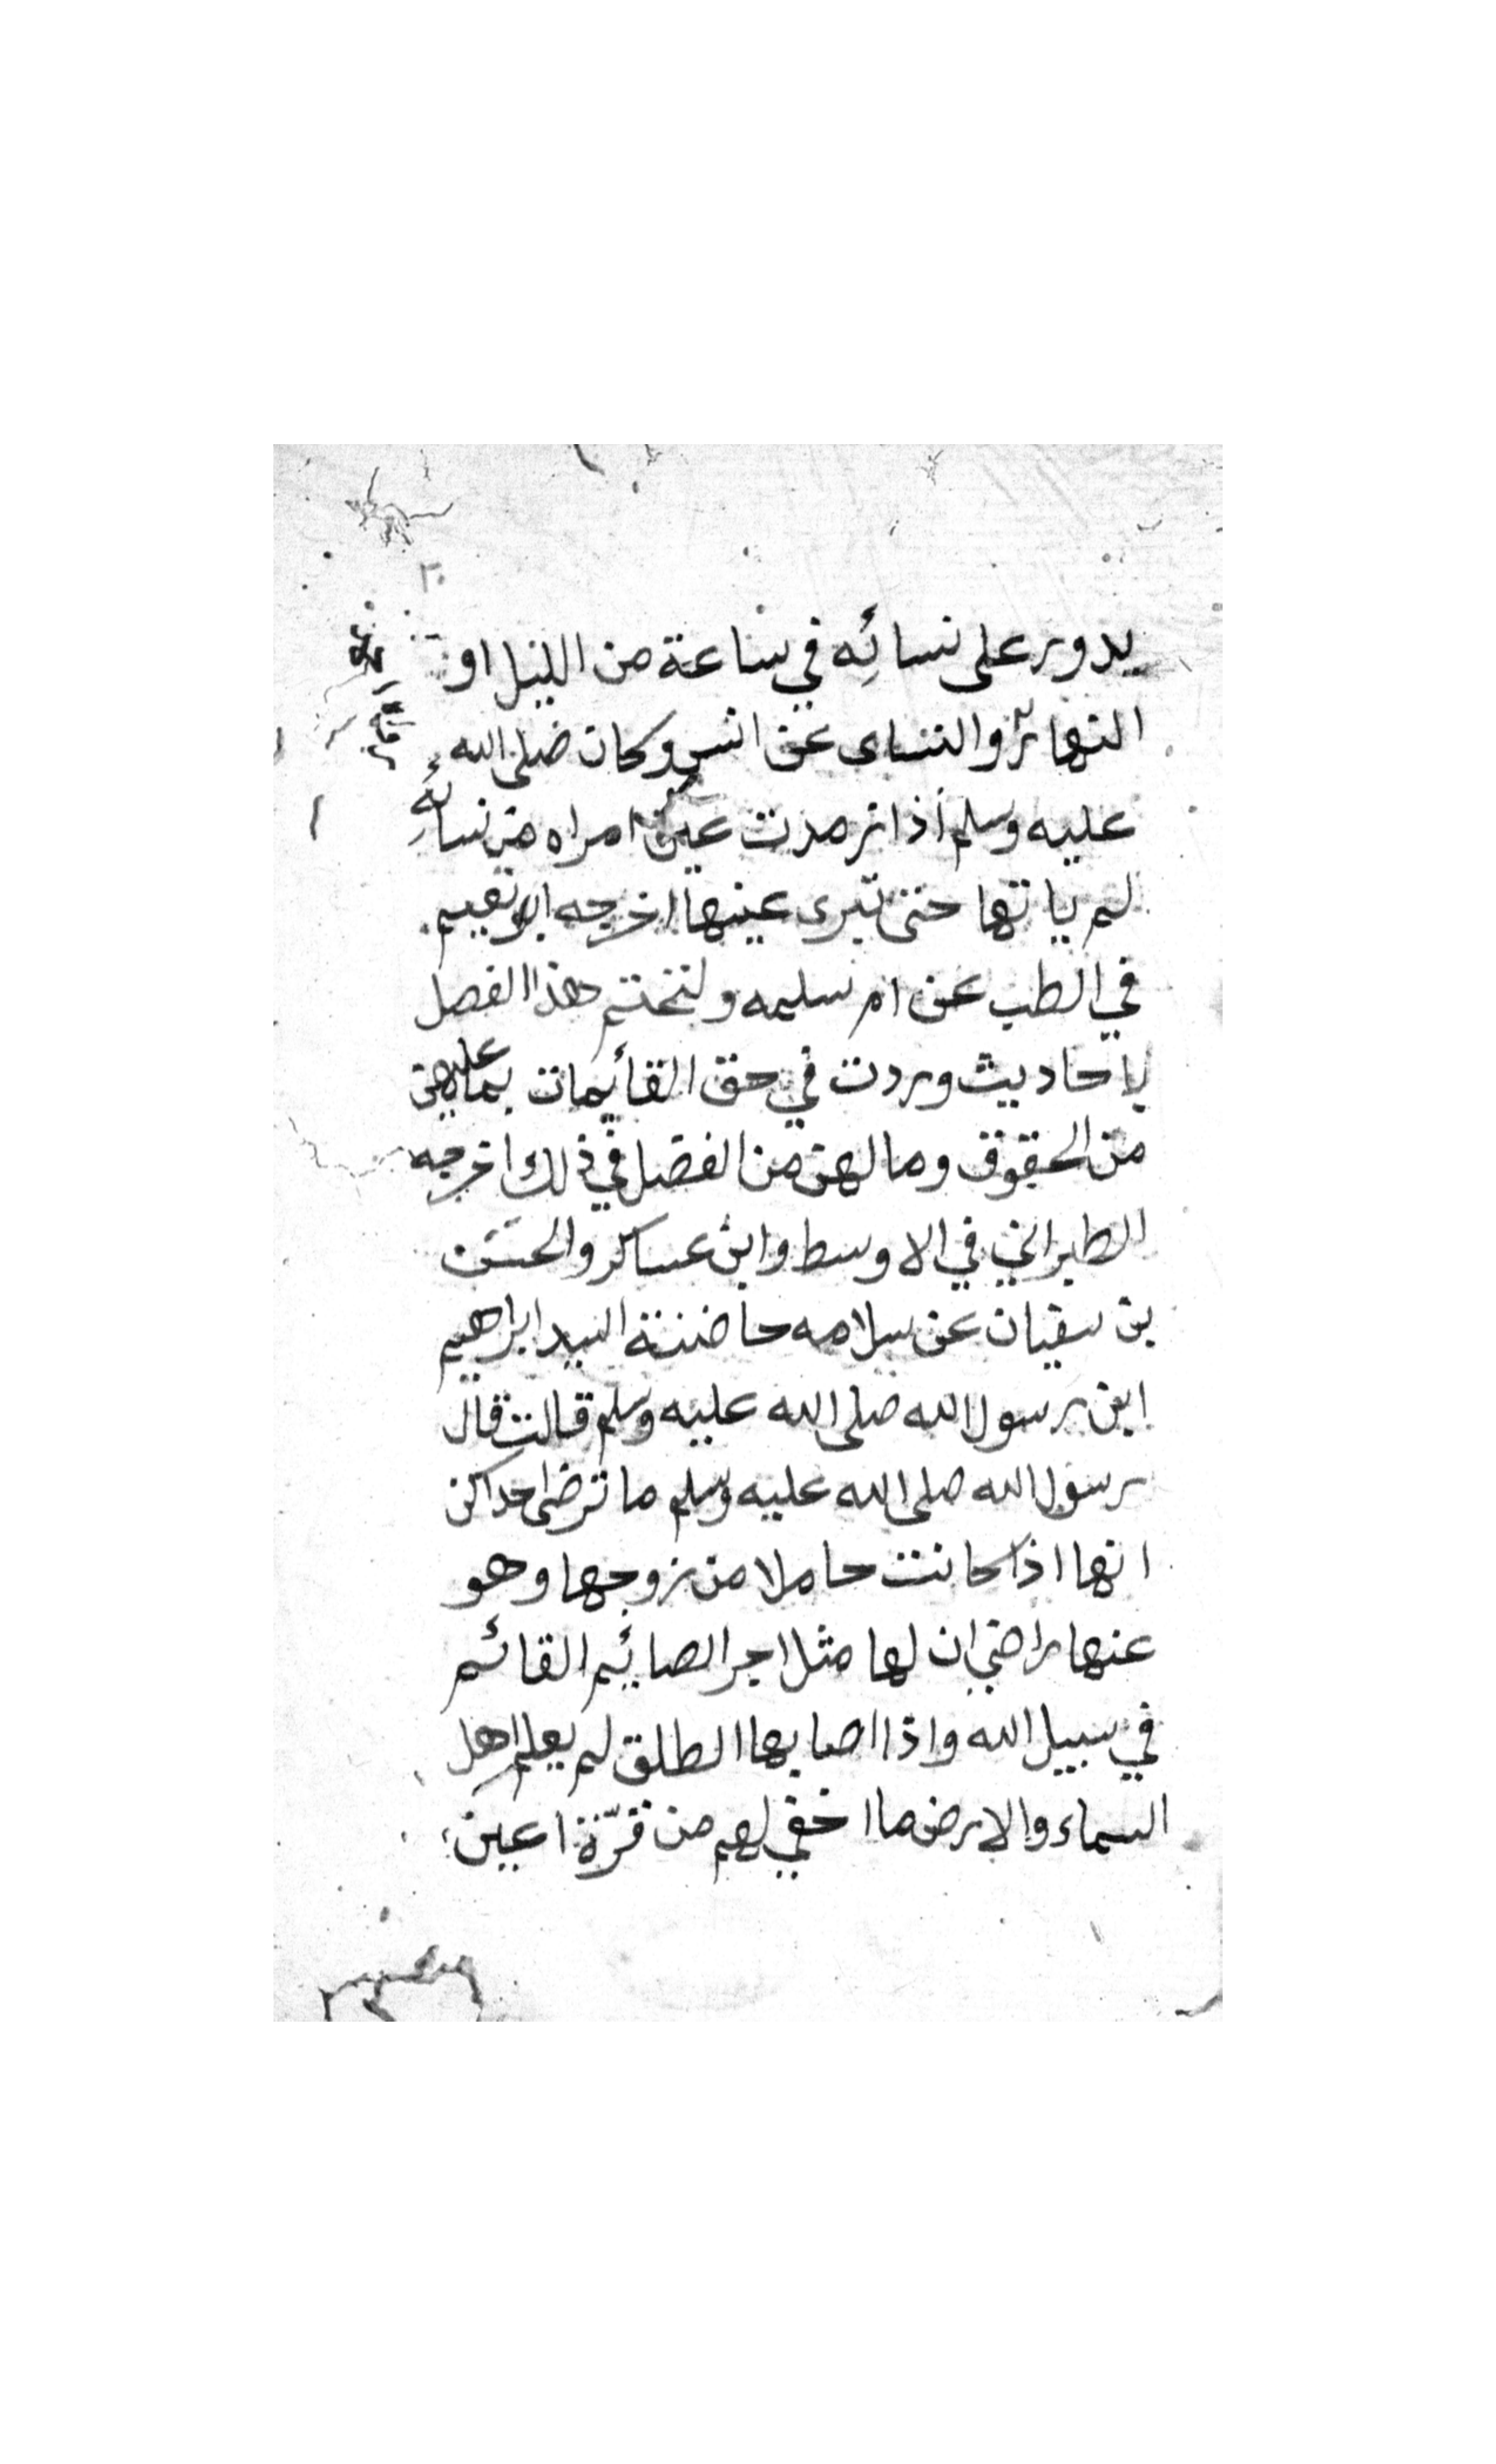 يدور على نسائه في ساعة من الليل او
النهار والنساى عن انس وكان صلى الله
عليه وسلم اذا رمدت عين امراه من نسائه
لم ياتها حتى تبرى عينها اخرجه ابو نعيم
في الطب عن ام سلمه ولنختم هذا الفصل
باحاديث وردت في حق القائمات بما عليهن
من الحقوق وما لهن من الفضل في ذلك اخرجه
الطبراني في الاوسط وابن عساكر والحسن
بن سفيان عن سلامه حاضنة السيد ابراهيم
ابن رسول الله صلى الله عليه وسلم قالت قال
رسول الله صلى الله عليه وسلم ما ترضى احداكن
انها اذا كانت حاملا من زوجها وهو
عنها راضي ان لها مثل اجر الصائم القائم
في سبيل الله واذا اصابها الطلق لم يعلم اهل
السماء والارض ما اخفي لهم من قرّة اعين